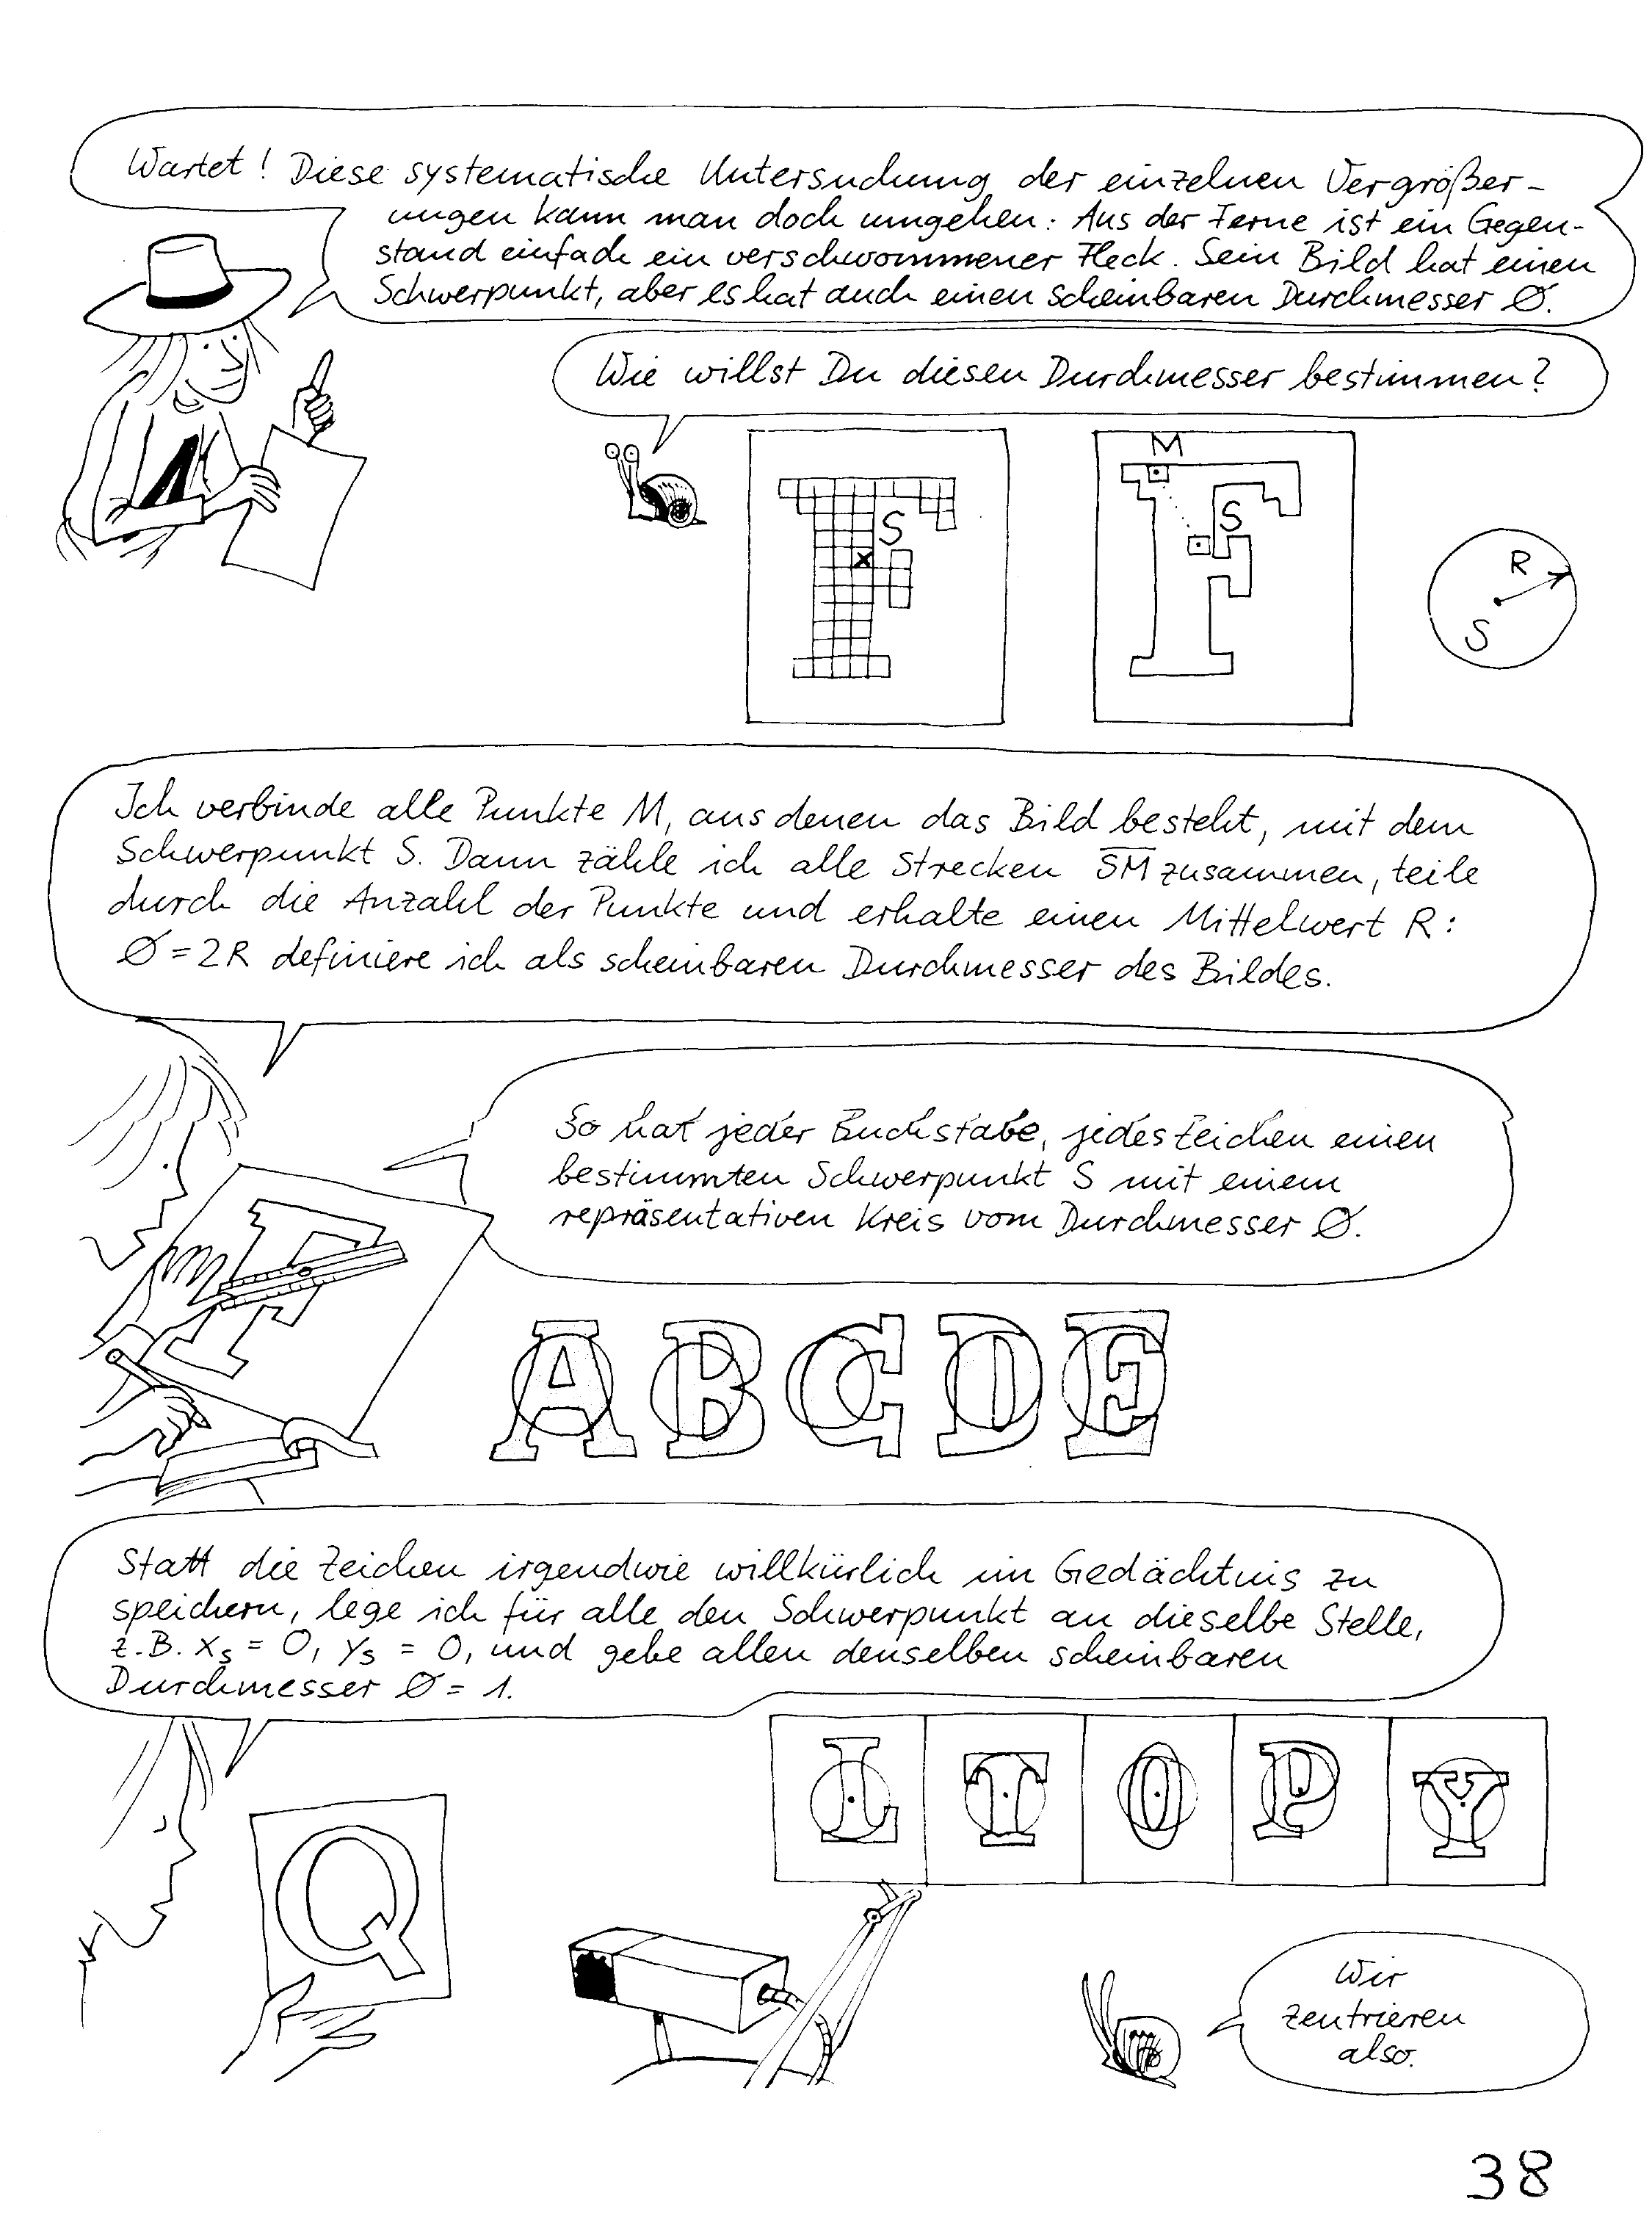 Wartet! Diese systematische Untersuchung der einzelnen Vergrößer-
ungen kann man doch umgehen: Aus der Ferne ist ein Gegen-
stand einfach ein verschwommener Fleck. Sein Bild hat einen
Schwerpunkt, aber es hat auch einen scheinbaren Durchmesser Ø.
Wie willst Du diesen Durchmesser bestimmen?
S
M
S
R
S
Ich verbinde alle Punkte M, aus denen das Bild besteht, mit dem
Schwerpunkt S. Dann zähle ich alle Strecken S̅M̅ zusammen, teile
durch die Anzahl der Punkte und erhalte einen Mittelwert R:
Ø = 2R definiere ich als scheinbaren Durchmesser des Bildes.
So hat jeder Buchstabe, jedes Zeichen einen
bestimmten Schwerpunkt S mit einem
repräsentativen Kreis vom Durchmesser Ø.
F
A B C D E
Statt die Zeichen irgendwie willkürlich im Gedächtnis zu
speichern, lege ich für alle den Schwerpunkt an dieselbe Stelle,
z.B. xₛ = 0, yₛ = 0, und gebe allen denselben scheinbaren
Durchmesser Ø = 1.
L T O P Y
Q
Wir
zentrieren
also.
38